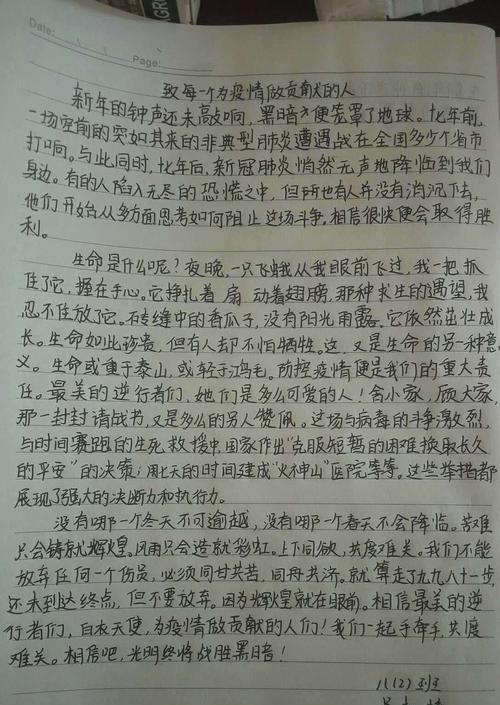 Date:
Page:
致每一个为疫情做贡献的人
新年的钟声还未敲响，黑暗便笼罩了地球。十七年前，
一场空前的突如其来的非典型肺炎遭遇战在全国多少个省市
打响。与此同时，十七年后，新冠肺炎悄然无声地降临到我们
身边。有的人陷入无尽的恐慌之中，但所也有人并没有消沉下去，
他们开始从多方面思考如何阻止这场斗争。相信很快便会取得胜
利。
生命是什么呢？夜晚，一只飞蛾从我眼前飞过，我一把抓
住了它，握在手心。它挣扎着扇动着翅膀，那种求生的渴望，我
忍不住放了它。砖缝中的香瓜子，没有阳光雨露。它依然茁壮成
长。生命如此珍贵，但有人却不怕牺牲。这，又是生命的另一种意
义。生命或重于泰山，或轻于鸿毛。防控疫情便是我们的重大责
任。最美的逆行者们，她们是多么可爱的人！舍小家，顾大家，
那一封封请战书，又是多么的另人赞佩。这场与病毒的斗争激烈，
与时间赛跑的生死救援中，国家作出“克服短暂的困难换取长久
的平安”的决策；用七天的时间建成“火神山”医院等等。这些举措都
展现了强大的决断力和执行力。
没有哪一个冬天不可逾越，没有哪一个春天不会降临。苦难
只会铸就辉煌。风雨只会造就彩虹。上下同欲，共度难关。我们不能
放弃任何一个伤员，必须同甘共苦，同舟共济。就算走了九九八十一步，
还未到达终点，但不要放弃。因为辉煌就在眼前。相信最美的逆
行者们，白衣天使，为疫情做贡献的人们！我们一起手牵手，共度
难关。相信吧，光明终将战胜黑暗！
八(12)班